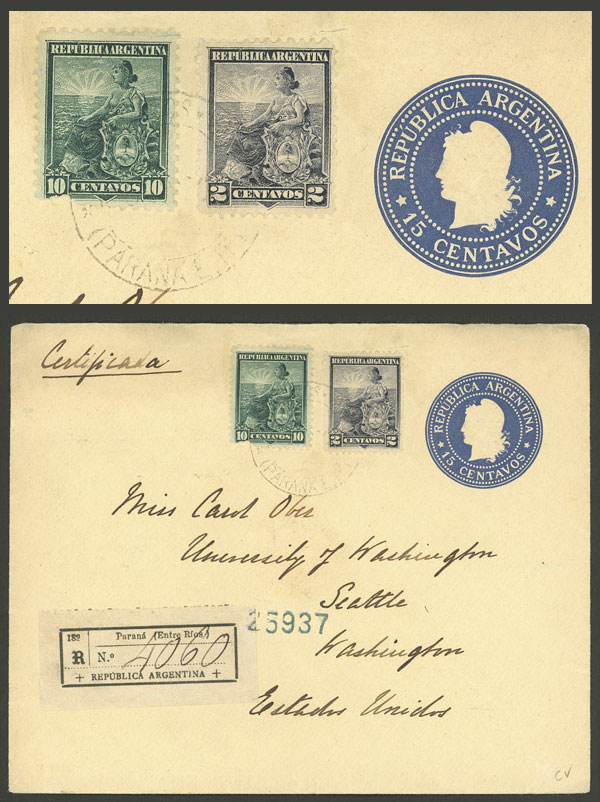 REPÚBLICA ARGENTINA
10 CENTAVOS 10
REPÚBLICA ARGENTINA
2 CENTAVOS 2
REPÚBLICA ARGENTINA
15 CENTAVOS
(PARANÁ E.
Certificada
REPÚBLICA ARGENTINA
10 CENTAVOS 10
REPÚBLICA ARGENTINA
2 CENTAVOS 2
REPÚBLICA ARGENTINA
15 CENTAVOS
(PARANÁ E.
Miss Carol Ober
University of Washington
Seattle
25937
Washington
182
Paraná (Entre Ríos)
R N.º 4060
+ REPÚBLICA ARGENTINA +
Estados Unidos
CV